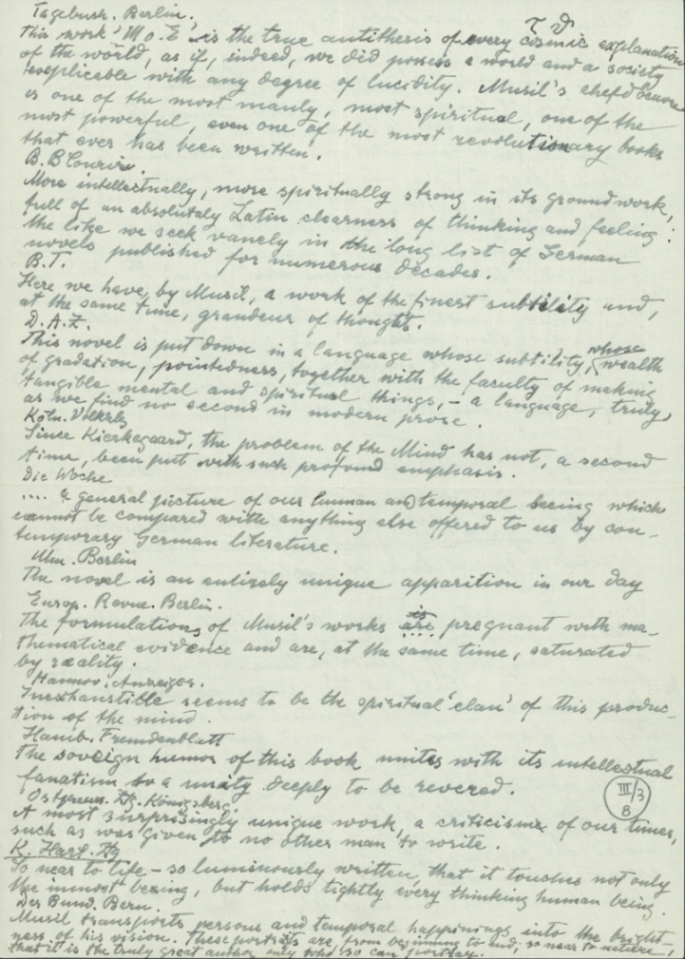 Tagebuch. Berlin.
This work 'M.o.E' is the true antithesis of every cosmic explanation
of the world, as if, indeed, we did possess a world and a society
explicable with any degree of lucidity. Musil's chef d'oeuvre
is one of the most manly, most spiritual, one of the
most powerful, even one of the most revolutionary books
that ever has been written.
B. B Courir.
More intellectually, more spiritually strong in its groundwork,
full of an absolutely Latin clearness of thinking and feeling:
the like we seek vanely in the long list of German
novels published for numerous decades.
B.T.
Here we have, by Musil, a work of the finest subtility and,
at the same time, grandeur of thought.
D.A.Z.
This novel is put down in a language whose subtility, whose wealth
of gradation, pointedness, together with the faculty of making
tangible mental and spiritual things, - a language, truly,
as we find no second in modern prose.
Köln. Volksztg
Since Kierkegaard, the problem of the Mind has not, a second
time, been put with such profound emphasis.
Die Woche
.... a general picture of our human and temporal beeing which
cannot be compared with anything else offered to us by con-
temporary German literature.
Berlin
The novel is an entirely unique apparition in our day
Europ. Revue. Berlin.
The formulations of Musil's works are pregnant with ma-
thematical evidence and are, at the same time, saturated
by reality.
Hannov. Anzeiger.
Inexhaustible seems to be the spiritual 'elan' of this produc-
tion of the mind.
Hamb. Fremdenblatt
The soveign humor of this book unites with its intellectual
fanatism to a unity deeply to be revered.
Ostpreuss. Ztg. Königsberg.
III/3
8
A most surprisingly unique work, a criticisme of our times,
such as was given to no other man to write.
K. Hart. Ztg
So near to life - so luminously written, that it touches not only
the inmost beeing, but holds tightly every thinking human being.
Der Bund. Bern.
Musil transports persons and temporal happenings into the bright-
ness of his vision. These portraits are, from beginning to end, so near to nature,
that it is the truly great author only who so can portray.